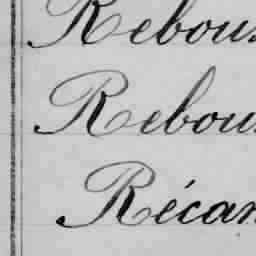 Rebous
Rebou
Récan